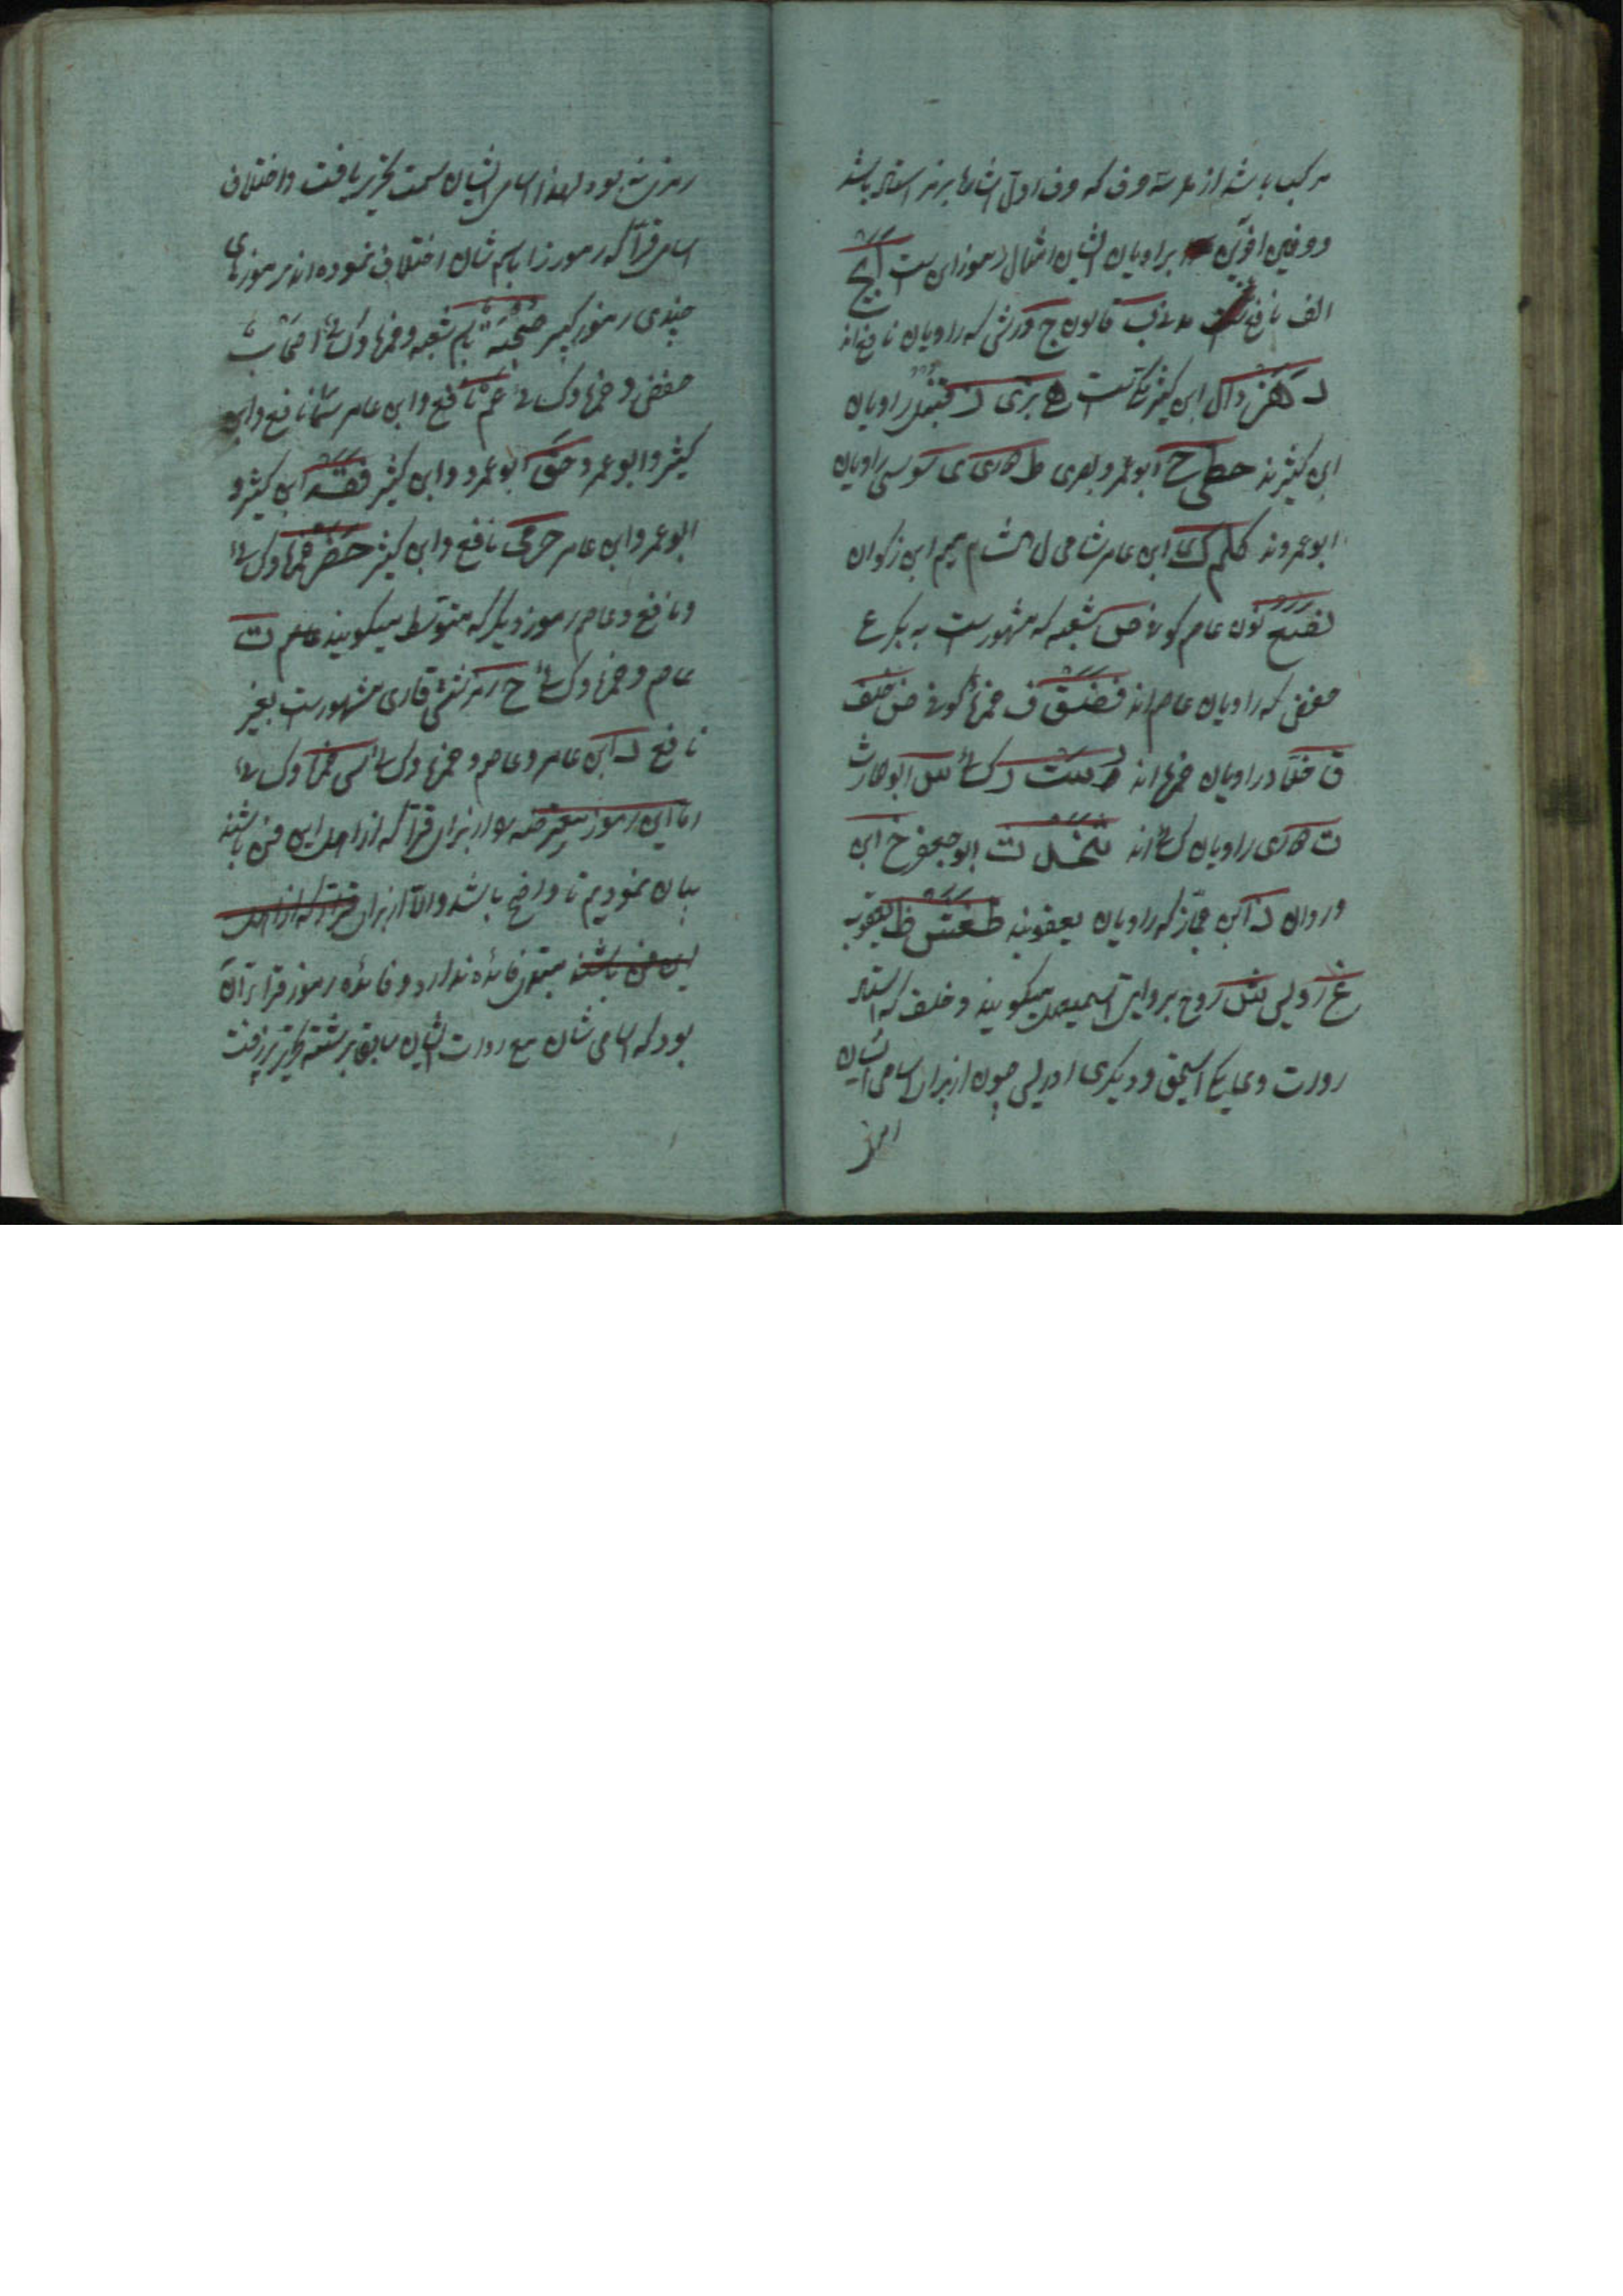 مرکب باشد از هر سه حرف که حرف اول اشارها برمز استاد باشد
دو حرفین آخرین براویان ایشان مثال رموز این ست ابج
الف نافع ست مدنی ب قالون ج ورش که راویان نافع اند
دهز دال ابن کثیر مکیست ه بزی ز قنبل راویان
ابن کثیرند حطی ح ابوعمرو بصری ط دوری ی سوسی راویان
ابوعمروند کلم ک ابن عامر شامی ل هشام م میم ابن زکوان
نصع نون عاصم کوفی ص شعبه که مشهورست به بکر ع
حفص که راویان عاصم اند فضق ف حمزه کوفی ض خلف
ق خلاد راویان حمزه اند رست ر کسائی س ابوحارث
ت دوری راویان کسائی اند ثخذ ث ابوجعفر خ ابن
وردان ذ ابن جماز که راویان یعقوبند ظغش ظ یعقوب
غ رویس ش روح بروایت میگویند و خلف که استاد
روات وی یکی اسحق و دیگری ادریس چون از برای اسامی ایشان
رمز نه بود لهذا اسامی ایشان سمت تحریر یافت و اختلاف
اسامی قرا که رموز را باسم شان اختلاف نموده اند رموزهای
چندی رموز کبیر صحبة باسم شعبه و حمزه و کسائی اصحاب
حفص و حمزه و کسائی عم نافع و ابن عامر سما نافع و ابن
کثیر و ابوعمرو حق ابوعمرو و ابن کثیر نفر ابن کثیر و
ابوعمرو ابن عامر حرمی نافع و ابن کثیر حصن حمزه و کسائی
و نافع و عاصم رموز دیگر که متوسط میگویند ث
عاصم و حمزه و کسائی خ رمز شش قاری مشهورست بغیر
نافع ذ ابن عامر و عاصم و حمزه و کسائی ش حمزه و کسائی
اما این رموز از برای قرا که از اهل این فن باشند
بیان نمودیم تا واضح باشد والا از برای قرا که از اهل
این فن باشند فائده ندارد و فائده رموز قرا تا آن
بود که اسامی شان مع روات ایشان سابق بر رشته تحریر رفت